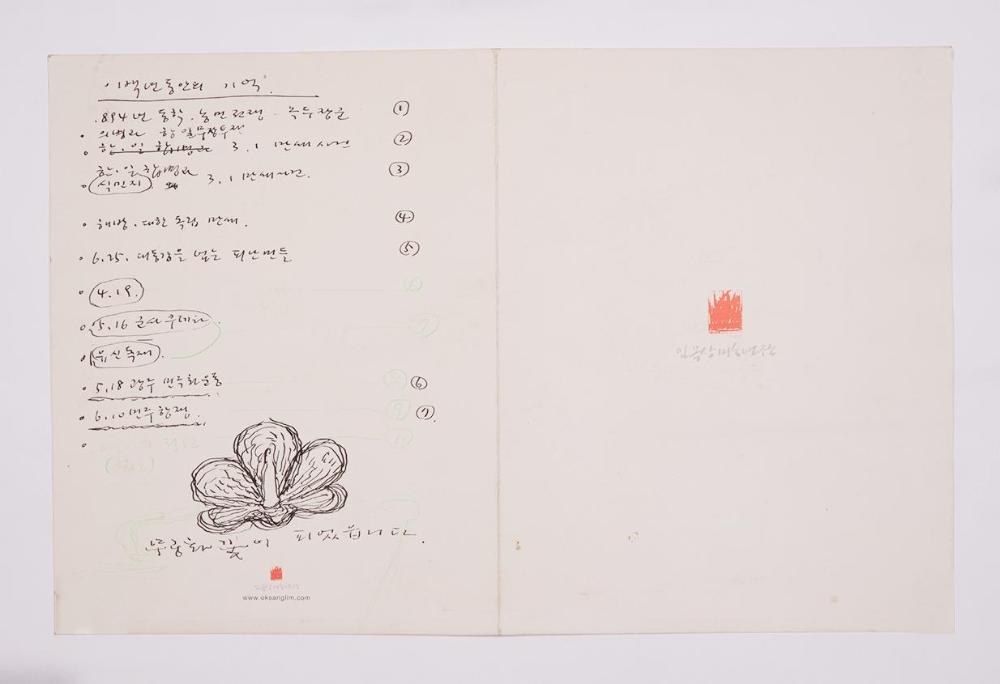 이백년동안의 기억.
1894년 동학. 농민전쟁. 녹두장군 ①
• 의병과 항일무장투쟁
• 한.일 합병과 3.1 만세사건 ②
한.일 합병과
• 식민지 3.1 만세사건. ③
• 해방. 대한독립 만세. ④
• 6.25. 대동강을 넘는 피난민들 ⑤
• 4.19. ⑥
• 5.16 군사쿠데타. ⑦
• 유신독재.
• 5.18 광주 민주화운동 ⑥
• 6.10 민주항쟁. ⑦
•
무궁화 꽃이 피었습니다.
www.oksanglim.com
임옥상미술연구소